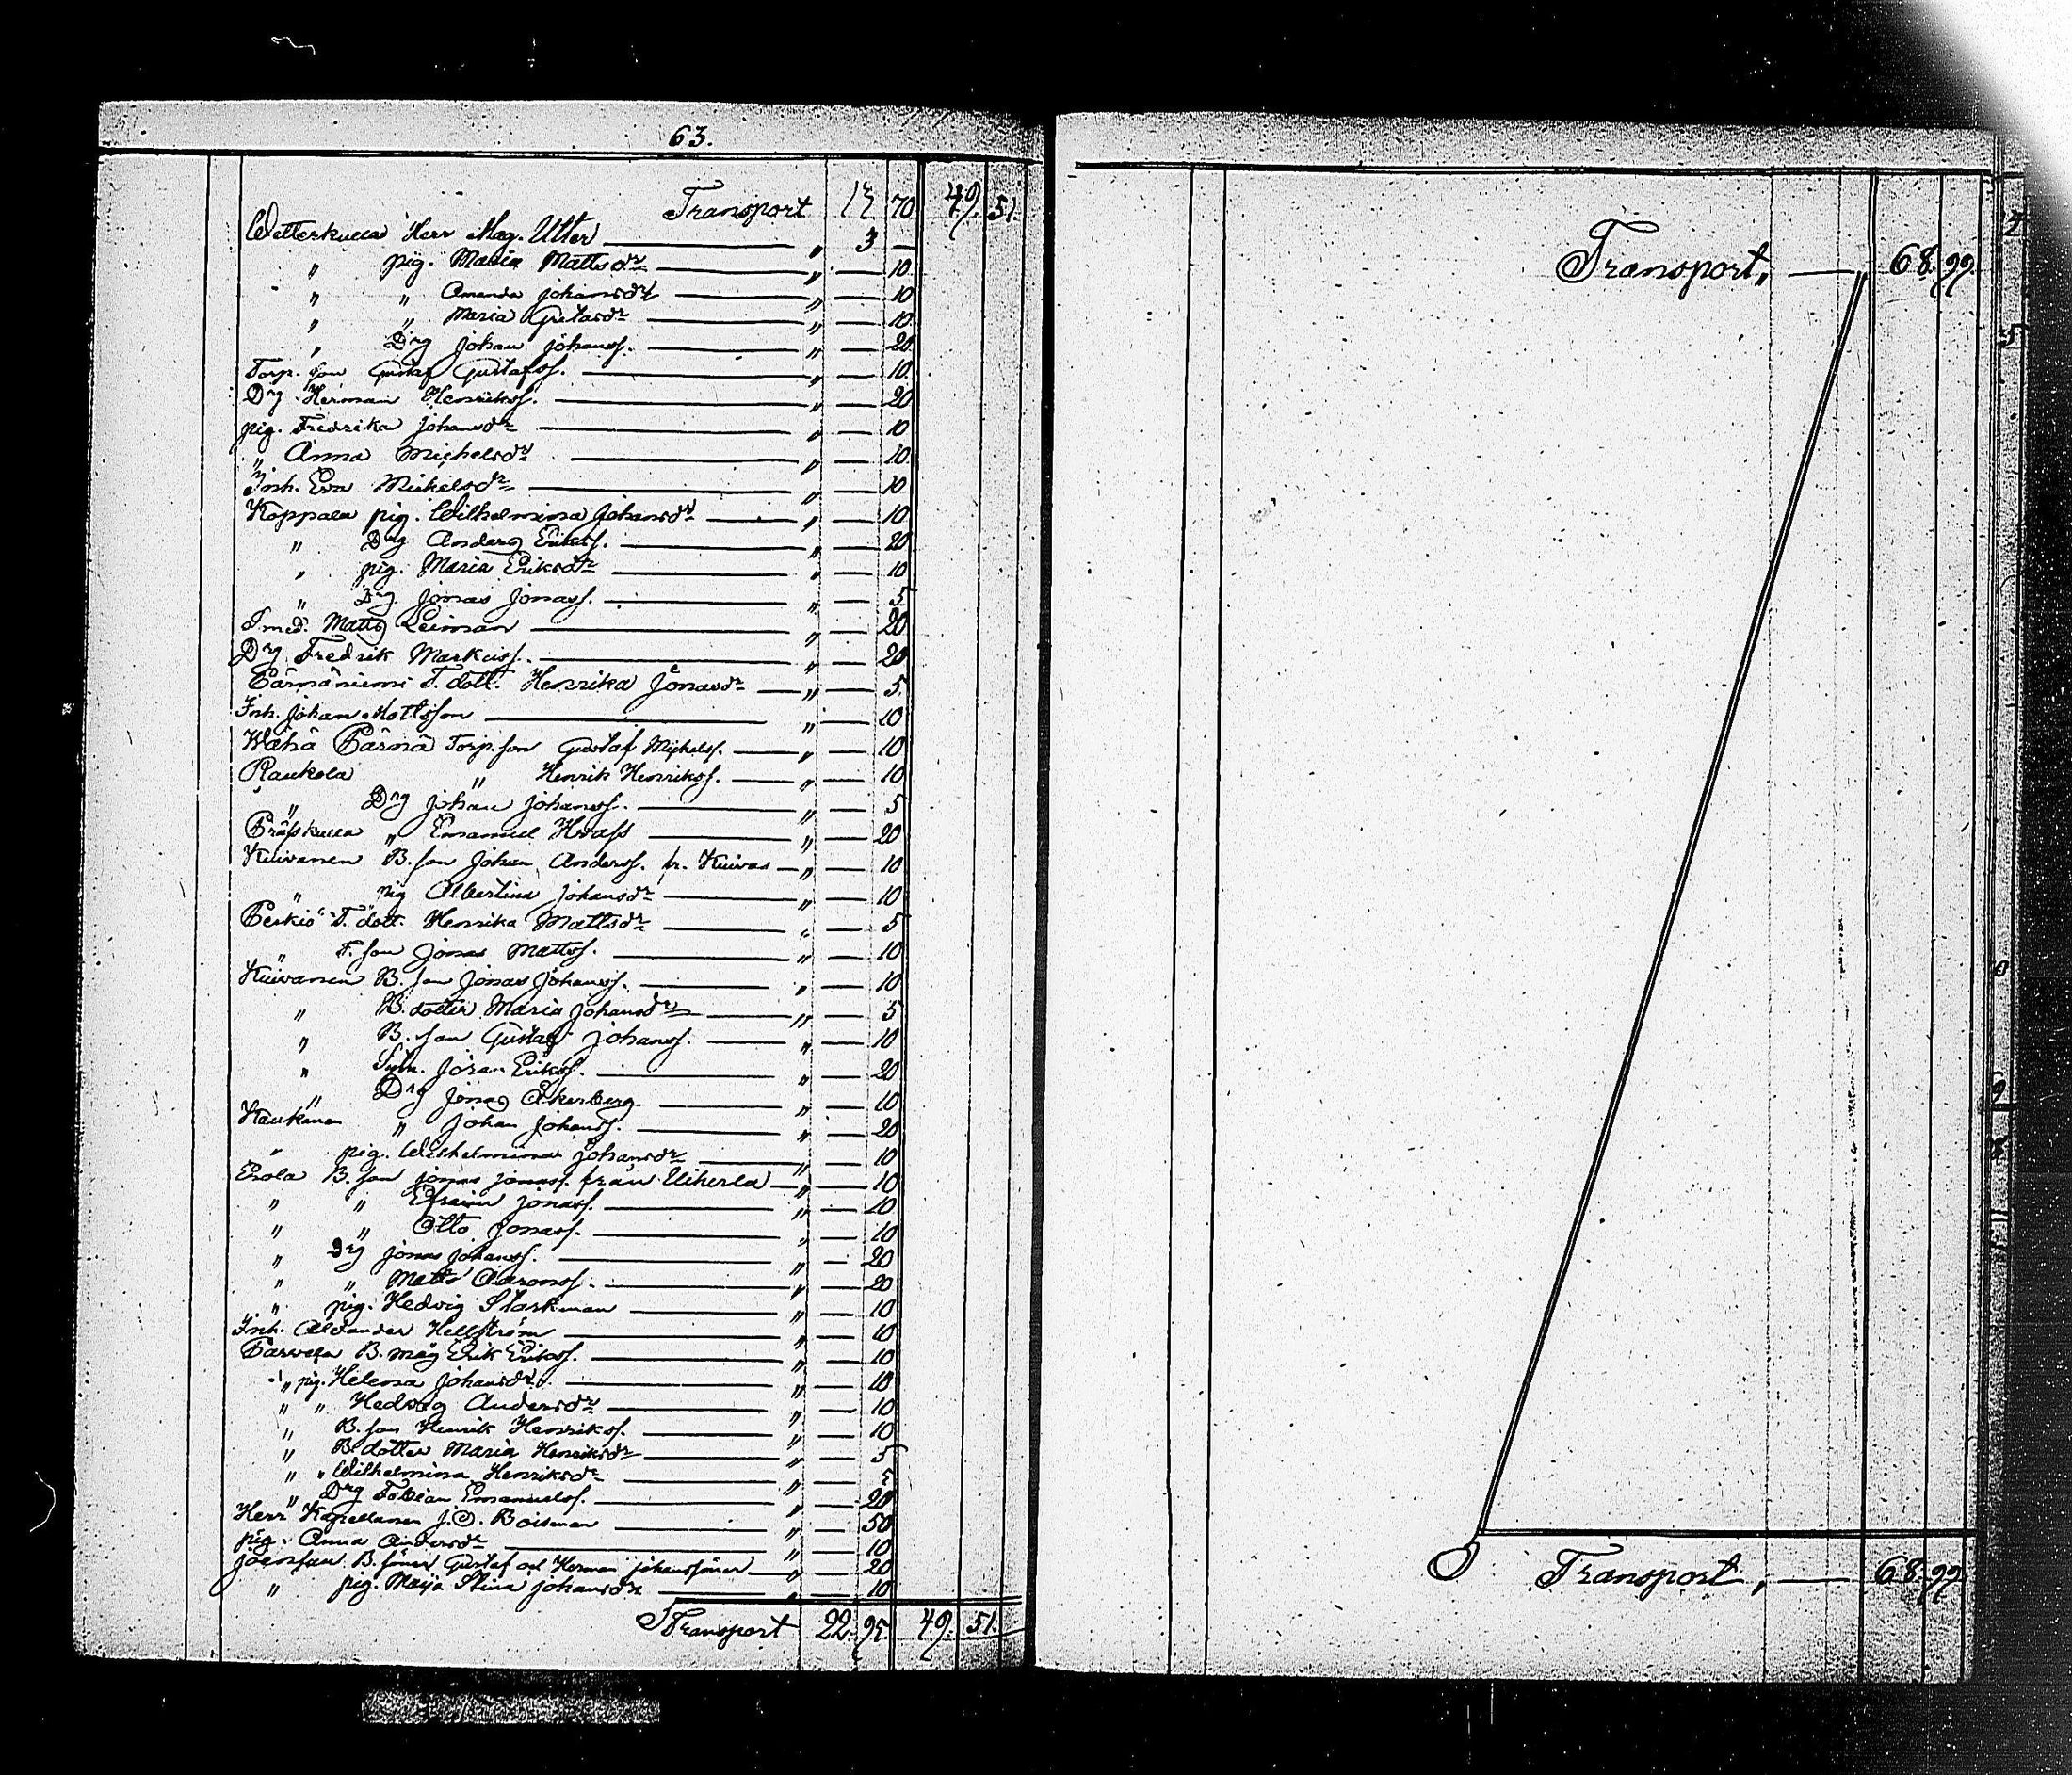 63.
Transport 15 70 49. 51.
Wetterkulla Herr Mag. Utter — " 3 —
" pig. Maria Mattsdr — " — 10
" " Amanda Johansdr — " — 10
" " Maria Gretasdr — " — 10
" Drg Johan Johanss. — " — 20
Torp. son Gustaf Gustafss. — " — 10
Drg Herman Henrikss. — " — 20
pig. Fredrika Johansdr — " — 10
" Anna Michelsdr — " — 10
Inh. Eva Mickelsdr — " — 10
Koppala pig. Wilhelmina Johansdr — " — 10
" Drg Anders Erikss. — " — 20
" pig. Maria Eriksdr — " — 10
" Drg. Jonas Jonass. — " — 5
Smed. Matts Leiman — " — 20
Drg Fredrik Markuss. — " — 20
Pärnäniemi T. dott. Henrika Jonasdr — " — 5
Inh. Johan Mattsson — " — 10
Wähä Pärnä Torp. son Gustaf Mickelss. — " — 10
Raukola " Henrik Henrikss. — " — 10
" Drg Johan Johanss. — " — 5
Präfskulla " Emanuel Hvass — " — 20
Kuivanen B. son Johan Anderss. fr. Kuivas — " — 10
" pig Albertina Johansdr — " — 10
Peskiö T. dott. Henrika Mattsdr — " — 5
" T. son Jonas Mattss. — " — 10
Kuivanen B. son Jonas Johanss. — " — 10
" B. dotter Maria Johansdr — " — 5
" B. son Gustaf Johanss. — " — 10
" Sytn. Jöran Erikss. — " — 20
" Drg Jonas Åkerberg — " — 10
Kaukanen " Johan Johanss. — " — 20
" pig. Wilhelmina Johansdr — " — 10
Erola B. son Jonas Jonass. från Uiherla — " — 10
" " Efraim Jonass. — " — 10
" " Otto Jonass. — " — 10
" Drg Jonas Johanss. — " — 20
" " Matts Aaronss. — " — 20
" pig. Hedvig Starkman — " — 10
Inh. Alexander Hellström — " — 10
Parvela B. måg Erik Erikss. — " — 10
" pig. Helena Johansdr. — " — 10
" " Hedvig Andersdr — " — 10
" B. son Henrik Henrikss. — " — 10
" B. dotter Maria Henriksdr — " — 5
" " Wilhelmina Henriksdr — " — 5
" Drg Tobias Emanuelss. — " — 20
Herr Kapellanen J. O. Boisman — " — 50
pig. Anna Andersdr — " — 10
B. söner Gustaf och Herman Johanssöner — " — 20
" pig. Maija Stina Johansdr — " — 10
Transport 22. 95 49. 51.
Transport, — " 68. 99.
Transport, — 68. 99